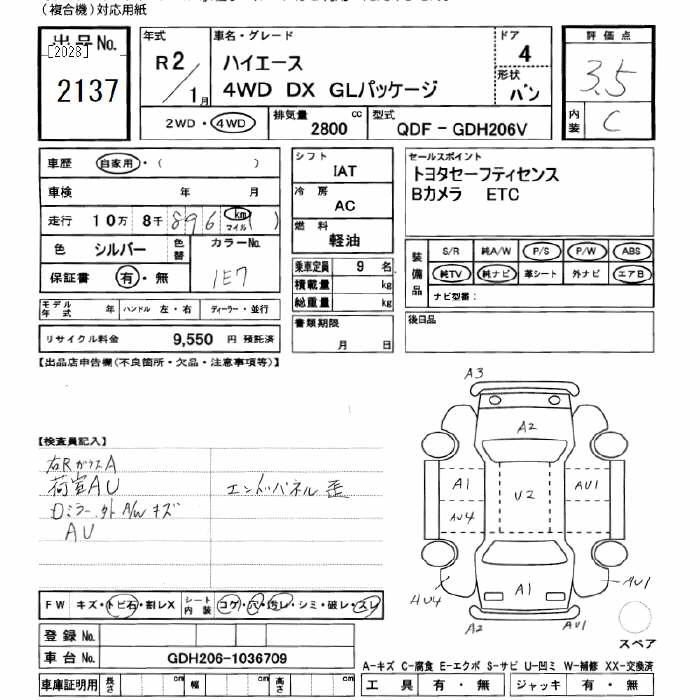 (複合機)対応用紙
出品No.
[2028]
2137
年式
R2/1月
車名・グレード
ハイエース
4WD DX GLパッケージ
ドア
4
形状
バン
評価点
3.5
内装
C
2WD・4WD
排気量
2800 cc
型式
QDF-GDH206V
車歴 自家用・( )
車検 年 月
走行 10万 8千 896 km マイル ( )
色 シルバー
色替
カラーNo.
1E7
保証書 有・無
モデル年式 年
ハンドル 左・右
ディーラー・並行
リサイクル料金 9,550 円 預託済
シフト
IAT
冷房
AC
燃料
軽油
乗車定員 9 名
積載量 kg
総重量 kg
書類期限
月 日
セールスポイント
トヨタセーフティセンス
Bカメラ ETC
装備品
S/R 純A/W P/S P/W ABS
純TV 純ナビ 革シート 外ナビ エアB
ナビ型番:
後日品
【出品店申告欄(不良箇所・欠品・注意事項等)】
【検査員記入】
右RガラスA
荷室AU
エンドパネル歪
Dミラー.外A/Wキズ
AU
A3
A2
A1
U2
AU1
AU4
A1
4U4
AU1
A2
AU1
スペア
FW キズ・トビ石・割レX
シート内装 コゲ・穴・汚レ・シミ・破レ・スレ
登録No.
車台No. GDH206-1036709
車庫証明用 長さ cm 幅 cm 高さ cm
A-キズ C-腐食 E-エクボ S-サビ U-凹ミ W-補修 XX-交換済
工具 有・無 ジャッキ 有・無